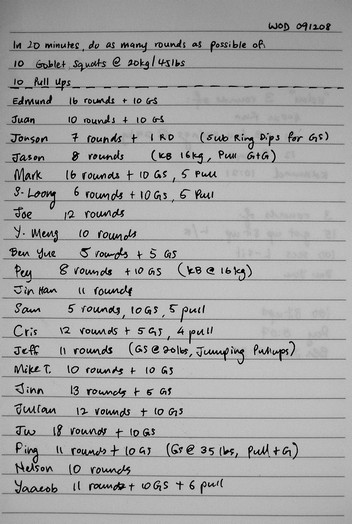 WOD 091208
In 20 minutes, do as many rounds as possible of:
10 Goblet Squats @ 20kg/45lbs
10 Pull Ups
Edmund 16 rounds + 10 GS
Juan 10 rounds + 10 GS
Jonson 7 rounds + 1 RD (Sub Ring Dips for GS)
Jason 8 rounds (KB 16kg, Pull G+G)
Mark 16 rounds + 10 GS, 5 Pull
S. Loong 6 rounds + 10 GS, 5 Pull
Joe 12 rounds
Y. Meng 10 rounds
Ben Yue 5 rounds + 5 GS
Pey 8 rounds + 10 GS (KB @ 16kg)
Jin Han 11 rounds
Sam 5 rounds, 10 GS, 5 pull
Cris 12 rounds + 5 GS, 4 pull
Jeff 11 rounds (GS @ 20lbs, Jumping Pullups)
Mike T. 10 rounds + 10 GS
Jinn 13 rounds + 5 GS
Julian 12 rounds + 10 GS
JW 18 rounds + 10 GS
Ping 11 rounds + 10 GS (GS @ 35 lbs, Pull + G)
Nelson 10 rounds
Yaacob 11 rounds + 10 GS + 6 pull